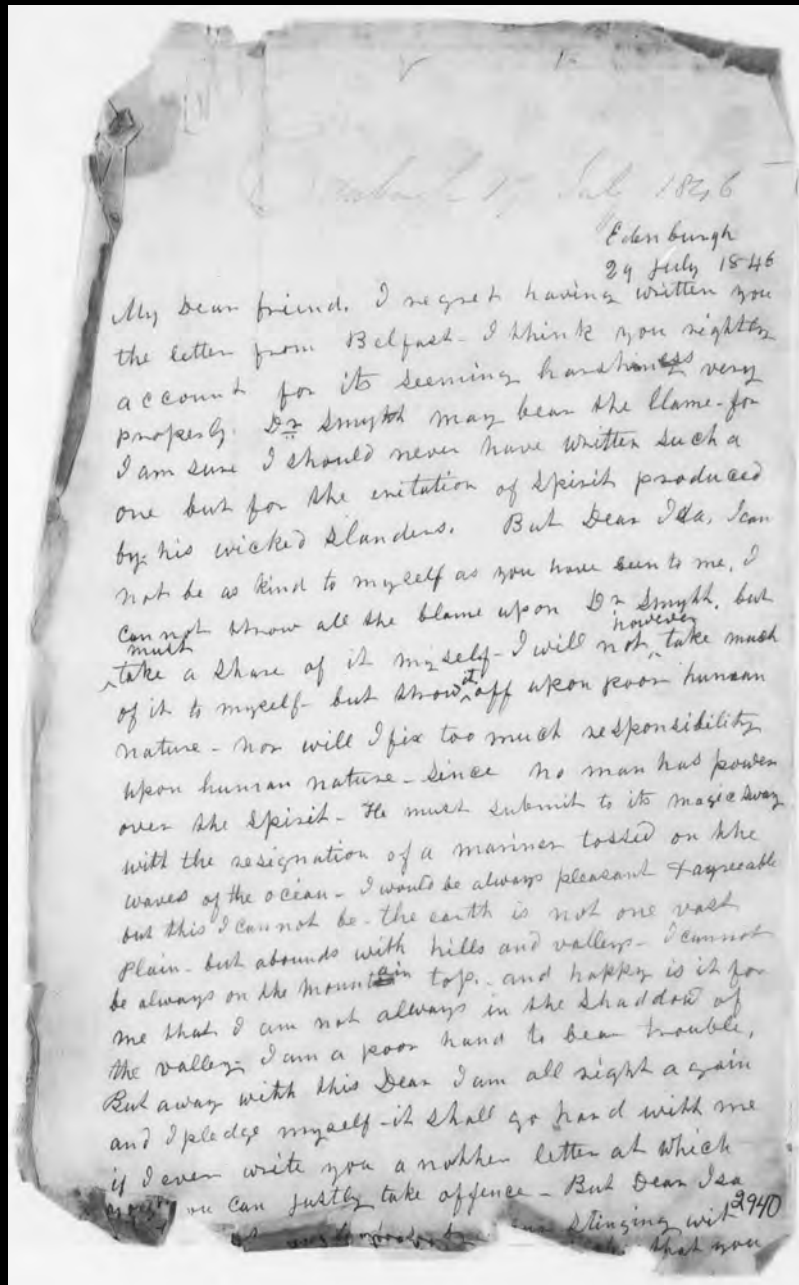 July 1846
Edenburgh
29 July 1846
My Dear friend. I regret having written you
the letter from Belfast - I think you rightly
account for its seeming harshness very
properly. Dr Smyth may bear the blame - for
I am sure I should never have written such a
one but for the iritation of spirit produced
by his wicked slanders. But Dear Isa, I can
not be as kind to myself as you have been to me, I
can not throw all the blame upon Dr Smyth, but
must take a share of it myself - I will not however take much
of it to myself - but throw it off upon poor human
nature - nor will I fix too much responsibility
upon human nature - since no man has power
over the spirit - He must submit to its magic sway
with the resignation of a mariner tossed on the
waves of the ocean - I would be always pleasant & agreeable
but this I cannot be - the earth is not one vast
plain - but abounds with hills and valleys - I cannot
be always on the mountain top. - and happy is it for
me that I am not always in the shaddow of
the valley - I am a poor hand to bear trouble,
But away with this Dear I am all right again
and I pledge myself - it shall go hard with me
if I ever write you a nother letter at which
you can justly take offence - But Dear Isa
2940
stinging wit
that you